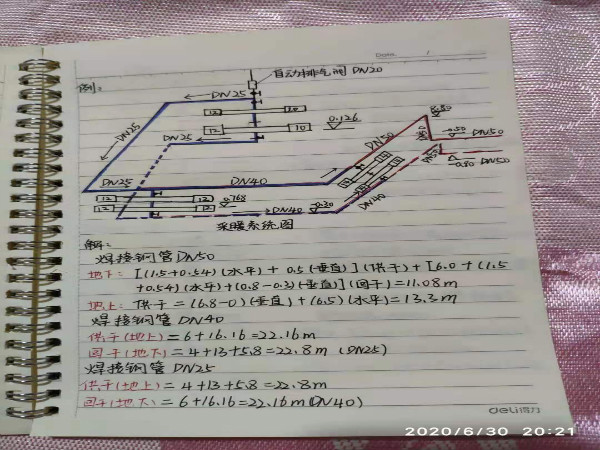 Date /
例:
自动排气阀 DN20
DN25
12 10
DN25
12 10
0.126
DN25
DN50
6.80
DN50
-0.50
DN50
DN50
-0.80 DN50
DN25
DN40
12 12
12 12
0.768
DN40
-0.30
DN40
采暖系统图
解:
焊接钢管DN50
地下: [(1.5+0.54)(水平) + 0.5(垂直)](供干)+[6.0+(1.5
+0.54)(水平)+(0.8-0.3)(垂直)](回干)=11.08m
地上: 供干 = (6.8-0)(垂直)+(6.5)(水平)=13.3m
焊接钢管 DN40
供干(地上) = 6+16.16=22.16m
回干(地下) = 4+13+5.8=22.8m (DN25)
焊接钢管 DN25
供干(地上) = 4+13+5.8=22.8m
回干(地下) = 6+16.16=22.16m(DN40)
deli得力
2020/6/30 20:21